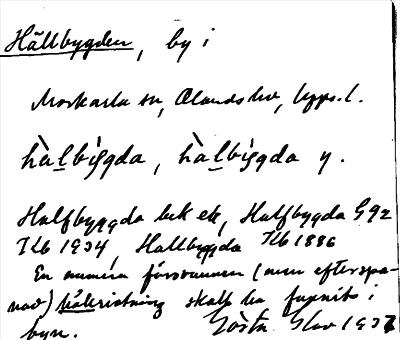 Hällbygden, by i
Morkarla sn, Olands hd, Upps. l.
hàlbìgda, hàlbìgda y.
Halfbyggda bek etc, Halfbygda G 92
Jb 1934, Hallbygda Jb 1886
En numera försvunnen (men efterspa-
nad) hällristning skall ha funnits i
byn.
Gösta 1937